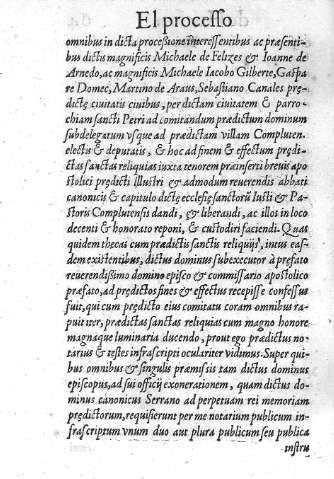 El processo
omnibus in dicta processione interessentibus ac præsenti-
bus dictis magnificis Michaele de Felizes & Ioanne de
Arnedo, ac magnificis Michaele Iacobo Gilberte, Gaspa
re Domec, Martino de Araus, Sebastiano Canales prę-
dictę ciuitatis ciuibus, per dictam ciuitatem & parro-
chiam sancti Petri ad comitandum prædictum dominum
subdelegatum vsque ad prædictam villam Compluten.
electis & deputatis, & hoc ad finem & effectum prędi-
ctas sanctas reliquias iuxta tenorem præinserti breuis apo
stolici prędicti Illustri & admodum reuerendis abbati
canonicis & capitulo dictę ecclesię sanctorũ Iusti & Pa-
storis Complutensis dandi, & liberandi, ac illos in loco
decenti & honorato reponi, & custodiri faciendi. Quas
quidem thecas cum prædictis sanctis reliquijs, intus eas-
dem existentibus, dictus dominus subexecutor à præfato
reuerendissimo domino episco & commissario apostolico
præfato, ad prędictos fines & effectus recepisse confessus
fuit, qui cum prędicto eius comitatu coram omnibus ra-
puit iter, prædictas sanctas reliquias cum magno honore
magnaque luminaria ducendo, prout ego prædictus no-
tarius & testes infrascripti oculariter vidimus. Super qui-
bus omnibus & singulis præmissis tam dictus dominus
episcopus, ad sui officij exonerationem, quam dictus do-
minus canonicus Serrano ad perpetuam rei memoriam
prędictorum, requisierunt per me notarium publicum in-
frascriptum vnum duo aut plura publicum seu publica
instru